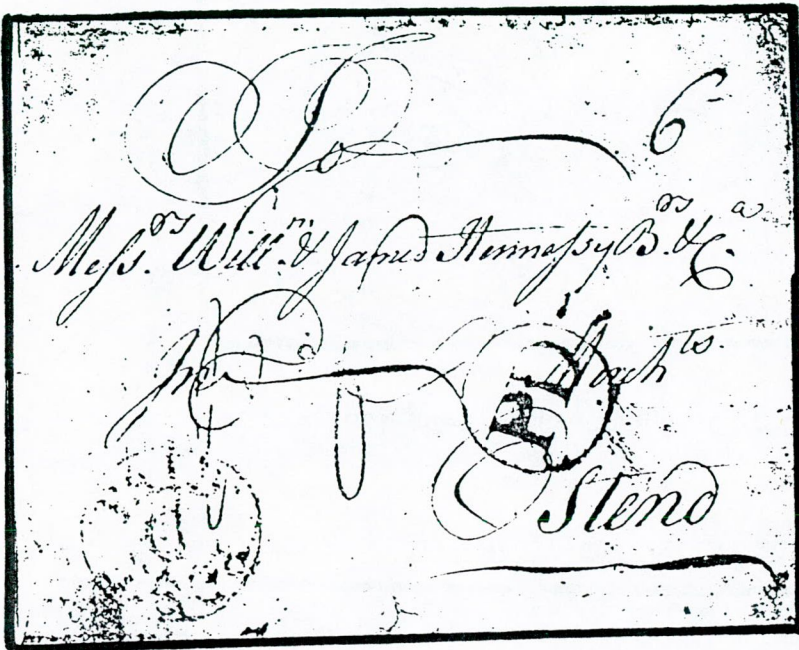 To 6
Messrs. Willm. & James Hennessy Brs. & Co.
In Mchts.
PD
Ostend